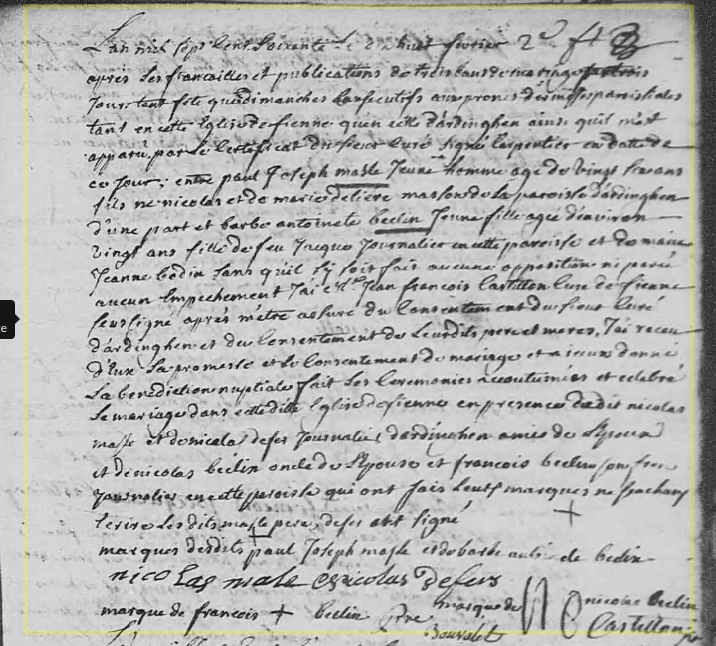 L'an mil sept Cent Soixante Le dix huit fevrier
apres Les fiancailles et publications de trois bans de mariage
Jour tant fete que dimanches Consecutifs aux prones des messes paroissiales
tant en cette Eglise de fienne qu'en celle d'ardinghen ainsi qu'il m'est
apparu par Le Certificat du sieur Curé signé Carpentier en datte de
ce Jour; entre paul Joseph masle Jeune homme agé de vingt six ans
fils de nicolas et de marie deliere masson de La paroisse d'ardinghen
d'une part et barbe antoinete beclin Jeune fille agée d'environ
vingt ans fille de feu Jacque Journalier en cette paroisse et de marie
Jeanne bodin sans qu'il s'y soit fait aucune opposition ni parû
aucun Empechement J'ai Jean francois Castillon Curé de fienne
soussigné après m'etre assuré du Consentement du sieur Curé
d'ardinghen et du Consentement de Leurdits pere et meres, J'ai receu
d'Eux La promesse et Le Consentement de mariage et a iceux donné
La benediction nuptiale fait Les Ceremonies accoutumées et celebré
Le mariage dans cette ditte Eglise de fienne en presence dudit nicolas
masle et de nicolas defer Journalier d'ardinghen amis de L'Epoux
et de nicolas beclin oncle de L'Epouse et francois beclin son frere
Journalier en cette paroisse qui ont fais Leurs marques ne sachans
Ecrire Lesdits masle pere, defer ont signé +
marques desdits + paul Joseph masle et de barbe beclin
nicolas male nicolas Defers
marque de francois + beclin marque de nicolas beclin
Bouvelet Castillon